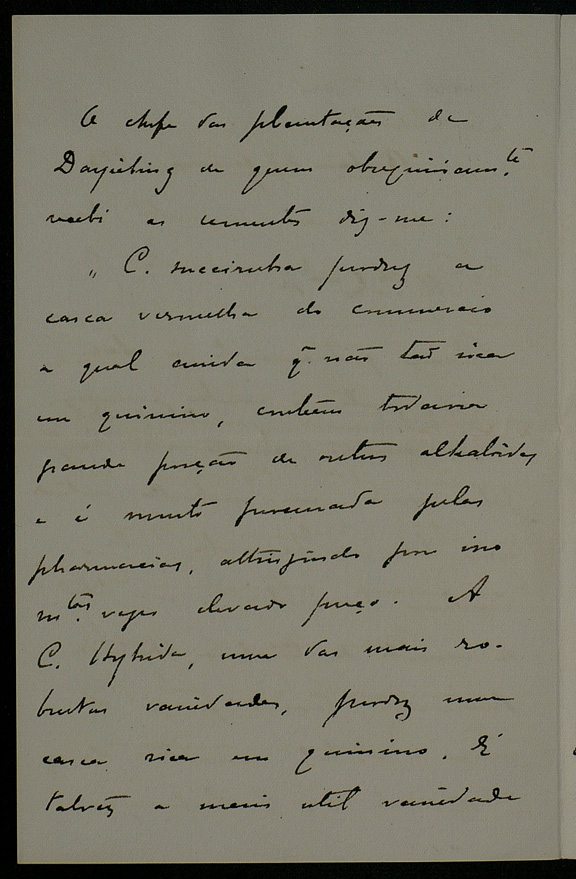 O chefe das plantações de
Darjeeling de quem obsequiosam.te
recebi as sementes diz-me:
„ C. succirubra produz a
casca vermelha do commercio
a qual ainda q. não tão rica
em quinino, contém todavia
grande porção de outros alkaloides
e é muito procurada pelas
pharmacias, attingindo por isso
m.tas vezes elevado preço. A
C. Hybrida, uma das mais ro-
bustas variedades, produz uma
casca rica em quinino. É
talvez a mais util variedade